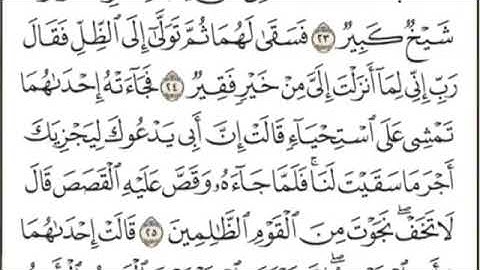 شَيْخٌ كَبِيرٌ ٢٣ فَسَقَىٰ لَهُمَا ثُمَّ تَوَلَّىٰٓ إِلَى ٱلظِّلِّ فَقَالَ
رَبِّ إِنِّى لِمَآ أَنزَلْتَ إِلَىَّ مِنْ خَيْرٍ فَقِيرٌ ٢٤ فَجَآءَتْهُ إِحْدَىٰهُمَا
تَمْشِى عَلَى ٱسْتِحْيَآءٍ قَالَتْ إِنَّ أَبِى يَدْعُوكَ لِيَجْزِيَكَ
أَجْرَ مَا سَقَيْتَ لَنَا ۚ فَلَمَّا جَآءَهُۥ وَقَصَّ عَلَيْهِ ٱلْقَصَصَ قَالَ
لَا تَخَفْ ۖ نَجَوْتَ مِنَ ٱلْقَوْمِ ٱلظَّٰلِمِينَ ٢٥ قَالَتْ إِحْدَىٰهُمَا